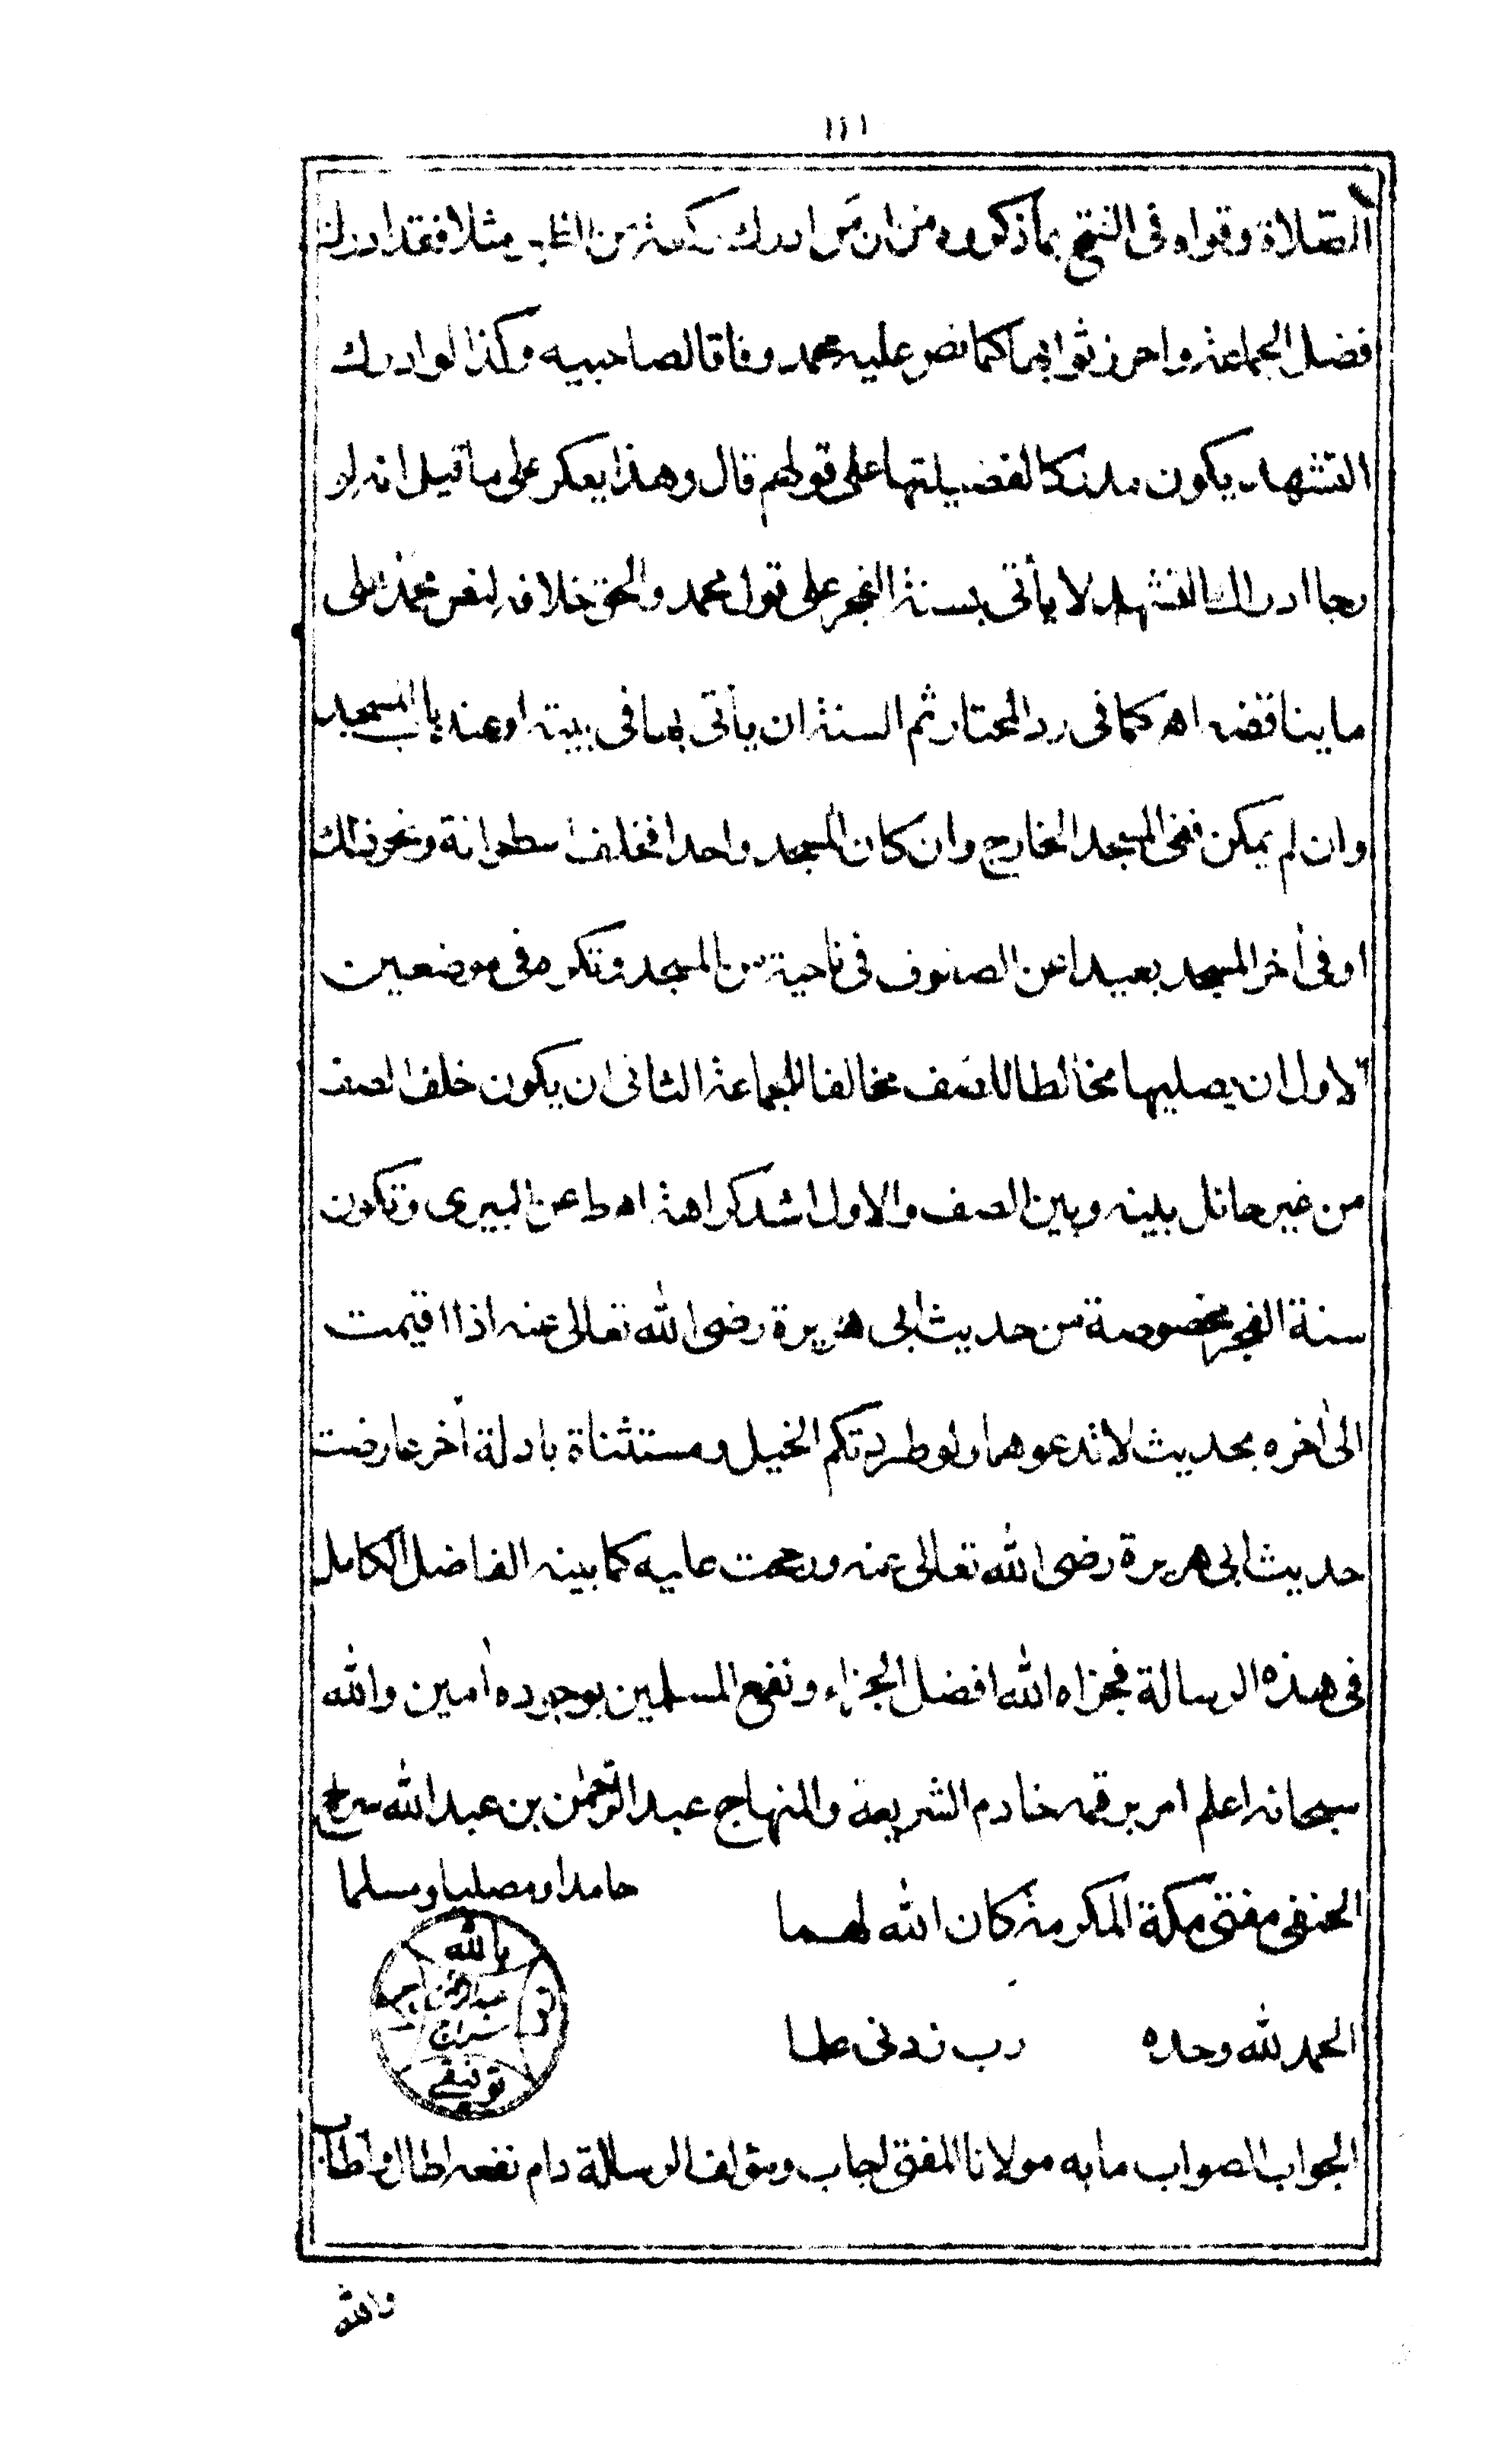 ١١١
الصلاة وقواه فى الفتح بما ذكروه من ان من ادرك ركعة من الظهر مثلا فقد ادرك
فضل الجماعة واحرز ثوابها كما نص عليه محمد وفاقا لصاحبيه وكذا لو ادرك
التشهد يكون مدركا لفضيلتها على قولهم قال وهذا يعكر على ما قيل انه لو
رجا ادراك التشهد لا يأتى بسنة الفجر على قول محمد والحق خلافه لنص محمد على
ما يناقضه اهـ كما فى رد المحتار ثم السنة ان يأتى بها فى بيته او عند باب المسجد
وان لم يمكن ففى المسجد الخارج وان كان المسجد واحدا فخلف اسطوانة ونحو ذلك
او فى أخر المسجد بعيدا عن الصفوف فى ناحية من المسجد وتكره فى موضعين
الاول ان يصليها مخالطا للصف مخالفا للجماعة الثانى ان يكون خلف الصف
من غير حائل بينه وبين الصف والاول اشد كراهة اهـ ط عن البيرى وتكون
سنة الفجر مخصوصة من حديث ابى هريرة رضى الله تعالى عنه اذا اقيمت
الى أخره بحديث لا تدعوهما ولو طردتكم الخيل ومستثناة بادلة أخر عارضت
حديث ابى هريرة رضى الله تعالى عنه ورجحت عليه كما بينه الفاضل الكامل
فى هذه الرسالة فجزاه الله افضل الجزاء ونفع المسلمين بوجوده أمين والله
سبحانه اعلم امر برقمه خادم الشريعة والمنهاج عبد الرحمن بن عبد الله سراج
الحنفى مفتى مكة المكرمة كان الله لهما
حامدا ومصليا ومسلما
بالله
عبد الرحمن
سراج
توفيقى
الحمد لله وحده رب زدنى علما
الجواب الصواب ما به مولانا المفتى اجاب ومؤلف الرسالة دام نفعه اطال واطاب